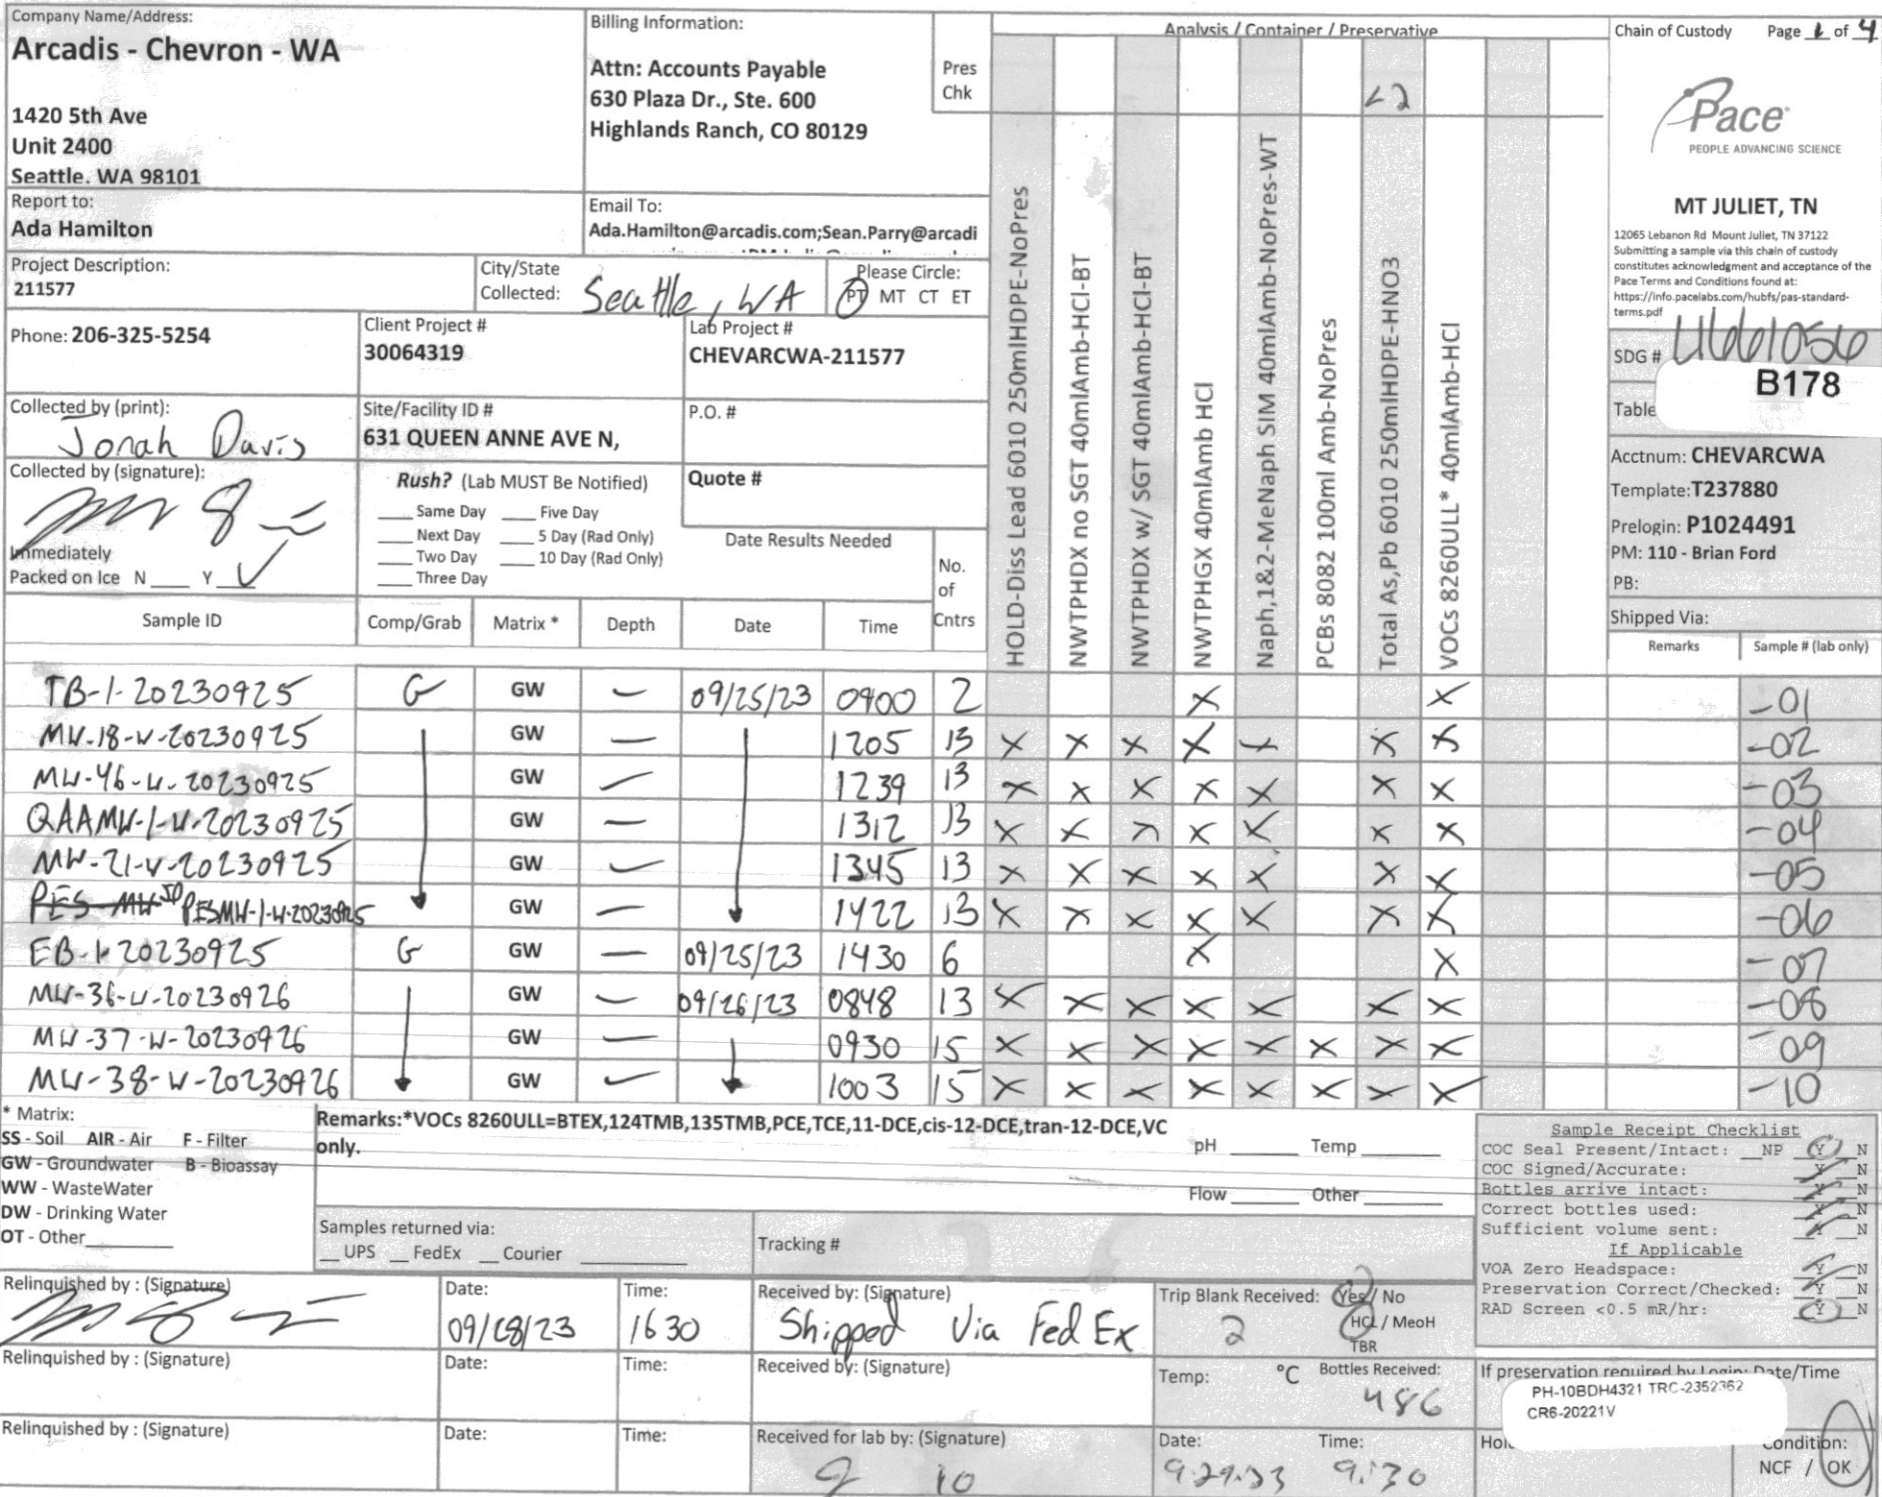 Company Name/Address:
Arcadis - Chevron - WA
1420 5th Ave
Unit 2400
Seattle. WA 98101
Billing Information:
Attn: Accounts Payable
630 Plaza Dr., Ste. 600
Highlands Ranch, CO 80129
Pres
Chk
Analysis / Container / Preservative
<2
Chain of Custody Page 1 of 4
Pace
PEOPLE ADVANCING SCIENCE
MT JULIET, TN
12065 Lebanon Rd Mount Juliet, TN 37122
Submitting a sample via this chain of custody
constitutes acknowledgment and acceptance of the
Pace Terms and Conditions found at:
https://info.pacelabs.com/hubfs/pas-standard-
terms.pdf
Report to:
Ada Hamilton
Email To:
Ada.Hamilton@arcadis.com;Sean.Parry@arcadi
Project Description:
211577
City/State
Collected: Seattle, WA
Please Circle:
PT MT CT ET
Phone: 206-325-5254
Client Project #
30064319
Lab Project #
CHEVARCWA-211577
SDG #
B178
Table
Collected by (print):
Jonah Davis
Site/Facility ID #
631 QUEEN ANNE AVE N,
P.O. #
Acctnum: CHEVARCWA
Template:T237880
Prelogin: P1024491
PM: 110 - Brian Ford
PB:
Shipped Via:
Collected by (signature):
Rush? (Lab MUST Be Notified)
Same Day Five Day
Next Day 5 Day (Rad Only)
Two Day 10 Day (Rad Only)
Three Day
Quote #
Date Results Needed
Immediately
Packed on Ice N Y ✓
No.
of
Cntrs
HOLD-Diss Lead 6010 250mlHDPE-NoPres
NWTPHDX no SGT 40mlAmb-HCl-BT
NWTPHDX w/ SGT 40mlAmb-HCl-BT
NWTPHGX 40mlAmb HCl
Naph,1&2-MeNaph SIM 40mlAmb-NoPres-WT
PCBs 8082 100ml Amb-NoPres
Total As,Pb 6010 250mlHDPE-HNO3
VOCs 8260ULL* 40mlAmb-HCl
Sample ID Comp/Grab Matrix * Depth Date Time Remarks Sample # (lab only)
TB-1-20230925 G GW — 09/25/23 0900 2 X X -01
MW-18-W-20230925 GW — 1205 13 X X X X X X X -02
MW-46-W-20230925 GW — 1239 13 X X X X X X X -03
QAAMW-1-W-20230925 GW — 1312 13 X X X X X X X -04
MW-21-W-20230925 GW — 1345 13 X X X X X X X -05
PES-MW JD PESMW-1-W-20230925 GW — 1422 13 X X X X X X X -06
EB-1-20230925 G GW — 09/25/23 1430 6 X X -07
MW-36-W-20230926 GW — 09/26/23 0848 13 X X X X X X X -08
MW-37-W-20230926 GW — 0930 15 X X X X X X X X -09
MW-38-W-20230926 GW — 1003 15 X X X X X X X X -10
* Matrix:
SS - Soil AIR - Air F - Filter
GW - Groundwater B - Bioassay
WW - WasteWater
DW - Drinking Water
OT - Other
Remarks:*VOCs 8260ULL=BTEX,124TMB,135TMB,PCE,TCE,11-DCE,cis-12-DCE,tran-12-DCE,VC
only.
pH Temp
Flow Other
Samples returned via:
UPS FedEx Courier
Tracking #
Sample Receipt Checklist
COC Seal Present/Intact: NP Y N
COC Signed/Accurate: Y N
Bottles arrive intact: Y N
Correct bottles used: Y N
Sufficient volume sent: Y N
If Applicable
VOA Zero Headspace: Y N
Preservation Correct/Checked: Y N
RAD Screen <0.5 mR/hr: Y N
Relinquished by : (Signature)
Date:
09/28/23
Time:
1630
Received by: (Signature)
Shipped Via Fed Ex
Trip Blank Received: Yes / No
2
HCL / MeoH
TBR
Relinquished by : (Signature)
Date:
Time:
Received by: (Signature)
Temp: °C
Bottles Received:
486
If preservation required by Login: Date/Time
PH-10BDH4321 TRC-2352362
CR6-20221V
Relinquished by : (Signature)
Date:
Time:
Received for lab by: (Signature)
Date:
9.29.23
Time:
9:30
Hol
Condition:
NCF / OK